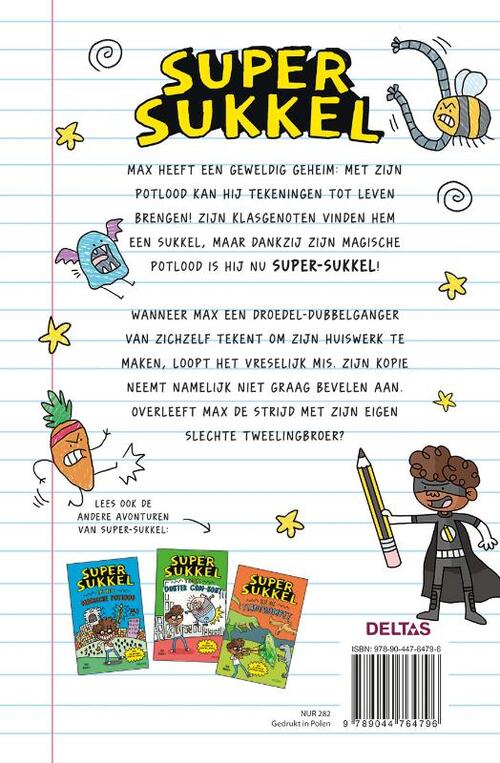 SUPER
SUKKEL
MAX HEEFT EEN GEWELDIG GEHEIM: MET ZIJN
POTLOOD KAN HIJ TEKENINGEN TOT LEVEN
BRENGEN! ZIJN KLASGENOTEN VINDEN HEM
EEN SUKKEL, MAAR DANKZIJ ZIJN MAGISCHE
POTLOOD IS HIJ NU SUPER-SUKKEL!
WANNEER MAX EEN DROEDEL-DUBBELGANGER
VAN ZICHZELF TEKENT OM ZIJN HUISWERK TE
MAKEN, LOOPT HET VRESELIJK MIS. ZIJN KOPIE
NEEMT NAMELIJK NIET GRAAG BEVELEN AAN.
OVERLEEFT MAX DE STRIJD MET ZIJN EIGEN
SLECHTE TWEELINGBROER?
LEES OOK DE
ANDERE AVONTUREN
VAN SUPER-SUKKEL:
SUPER
SUKKEL
EN HET
MAGISCHE POTLOOD
SUPER
SUKKEL
SUPER
SUKKEL
EN DE
DELTAS
ISBN: 978-90-447-6479-6
9 789044 764796
NUR 282
Gedrukt in Polen